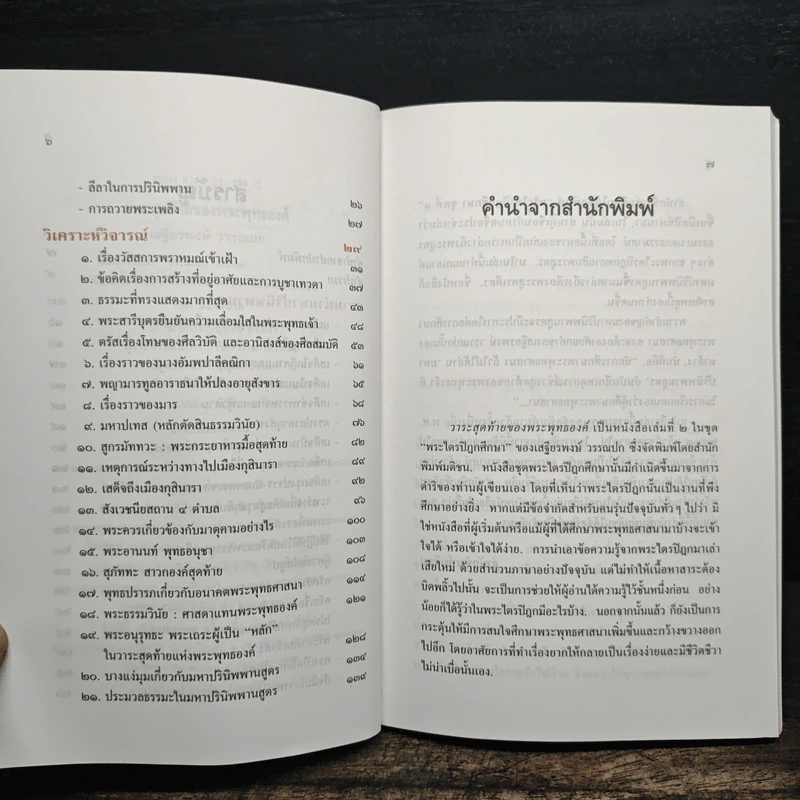 ๖
- ลีลาในการปรินิพพาน ๒๖
- การถวายพระเพลิง ๒๗
วิเคราะห์วิจารณ์ ๒๙
๑. เรื่องวัสสการพราหมณ์เข้าเฝ้า ๓๑
๒. ข้อคิดเรื่องการสร้างที่อยู่อาศัยและการบูชาเทวดา ๓๗
๓. ธรรมะที่ทรงแสดงมากที่สุด ๔๓
๔. พระสารีบุตรยืนยันความเลื่อมใสในพระพุทธเจ้า ๔๘
๕. ตรัสเรื่องโทษของศีลวิบัติ และอานิสงส์ของศีลสมบัติ ๕๓
๖. เรื่องราวของนางอัมพปาลีคณิกา ๖๑
๗. พญามารทูลอาราธนาให้ปลงอายุสังขาร ๖๕
๘. เรื่องราวของมาร ๖๘
๙. มหาปเทส (หลักตัดสินธรรมวินัย) ๗๖
๑๐. สูกรมัททวะ : พระกระยาหารมื้อสุดท้าย ๘๒
๑๑. เหตุการณ์ระหว่างทางไปเมืองกุสินารา ๘๙
๑๒. เสด็จถึงเมืองกุสินารา ๙๒
๑๓. สังเวชนียสถาน ๔ ตำบล ๙๖
๑๔. พระควรเกี่ยวข้องกับมาตุคามอย่างไร ๑๐๐
๑๕. พระอานนท์ พุทธอนุชา ๑๐๓
๑๖. สุภัททะ สาวกองค์สุดท้าย ๑๐๘
๑๗. พุทธปรารภเกี่ยวกับอนาคตพระพุทธศาสนา ๑๑๔
๑๘. พระธรรมวินัย : ศาสดาแทนพระพุทธองค์ ๑๒๑
๑๙. พระอนุรุทธะ พระเถระผู้เป็น "หลัก"
ในวาระสุดท้ายแห่งพระพุทธองค์ ๑๒๘
๒๐. บางแง่มุมเกี่ยวกับมหาปรินิพพานสูตร ๑๓๔
๒๑. ประมวลธรรมะในมหาปรินิพพานสูตร ๑๓๙
๗
คำนำจากสำนักพิมพ์
วาระสุดท้ายของพระพุทธองค์ เป็นหนังสือเล่มที่ ๒ ในชุด
"พระไตรปิฎกศึกษา" ของเสฐียรพงษ์ วรรณปก ซึ่งจัดพิมพ์โดยสำนัก
พิมพ์มติชน. หนังสือชุดพระไตรปิฎกศึกษานั้นมีกำเนิดขึ้นมาจากการ
ดำริของท่านผู้เขียนเอง โดยที่เห็นว่าพระไตรปิฎกนั้นเป็นงานที่พึง
ศึกษาอย่างยิ่ง หากแต่มีข้อจำกัดสำหรับคนรุ่นปัจจุบันทั่วๆ ไปว่า มิ
ใช่หนังสือที่ผู้เริ่มต้นหรือแม้ผู้ที่ได้ศึกษาพระพุทธศาสนามาบ้างจะเข้า
ใจได้ หรือเข้าใจได้ง่าย. การนำเอาข้อความรู้จากพระไตรปิฎกมาเล่า
เสียใหม่ ด้วยสำนวนภาษาอย่างปัจจุบัน แต่ไม่ทำให้เนื้อหาสาระต้อง
บิดพลิ้วไปนั้น จะเป็นการช่วยให้ผู้อ่านได้ความรู้ไว้ชั้นหนึ่งก่อน อย่าง
น้อยก็ได้รู้ว่าในพระไตรปิฎกมีอะไรบ้าง. นอกจากนั้นแล้ว ก็ยังเป็นการ
กระตุ้นให้มีการสนใจศึกษาพระพุทธศาสนาเพิ่มขึ้นและกว้างขวางออก
ไปอีก โดยอาศัยการที่ทำเรื่องยากให้กลายเป็นเรื่องง่ายและมีชีวิตชีวา
ไม่น่าเบื่อนั้นเอง.